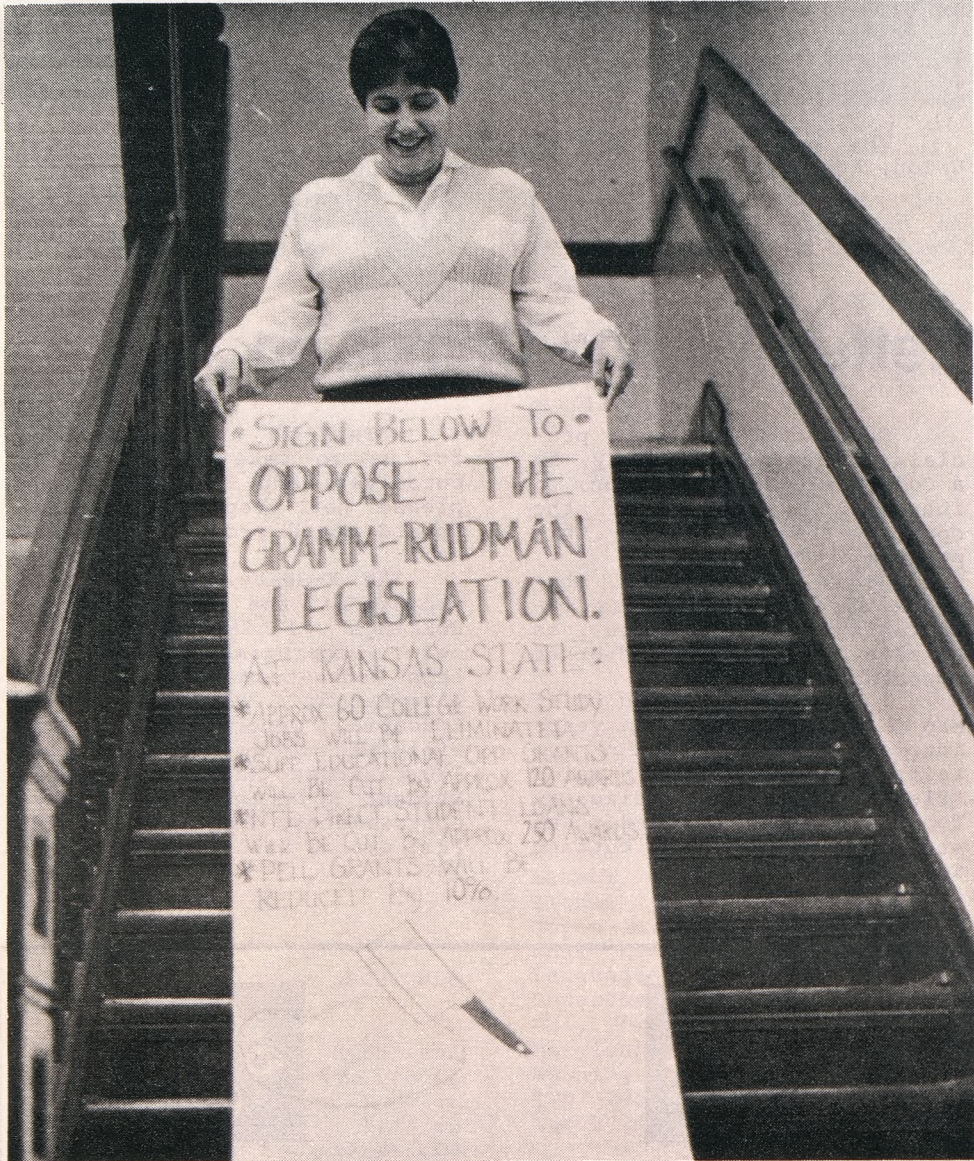 • SIGN BELOW TO •
OPPOSE THE
GRAMM-RUDMAN
LEGISLATION.
AT KANSAS STATE:
*APPROX 60 COLLEGE WORK STUDY
JOBS WILL BE ELIMINATED
*SUPP EDUCATIONAL OPP GRANTS
WILL BE CUT BY APPROX 120 AWARDS
*NT'L DIRECT STUDENT LOANS
WILL BE CUT BY APPROX 250 AWARDS
*PELL GRANTS WILL BE
REDUCED BY 10%.